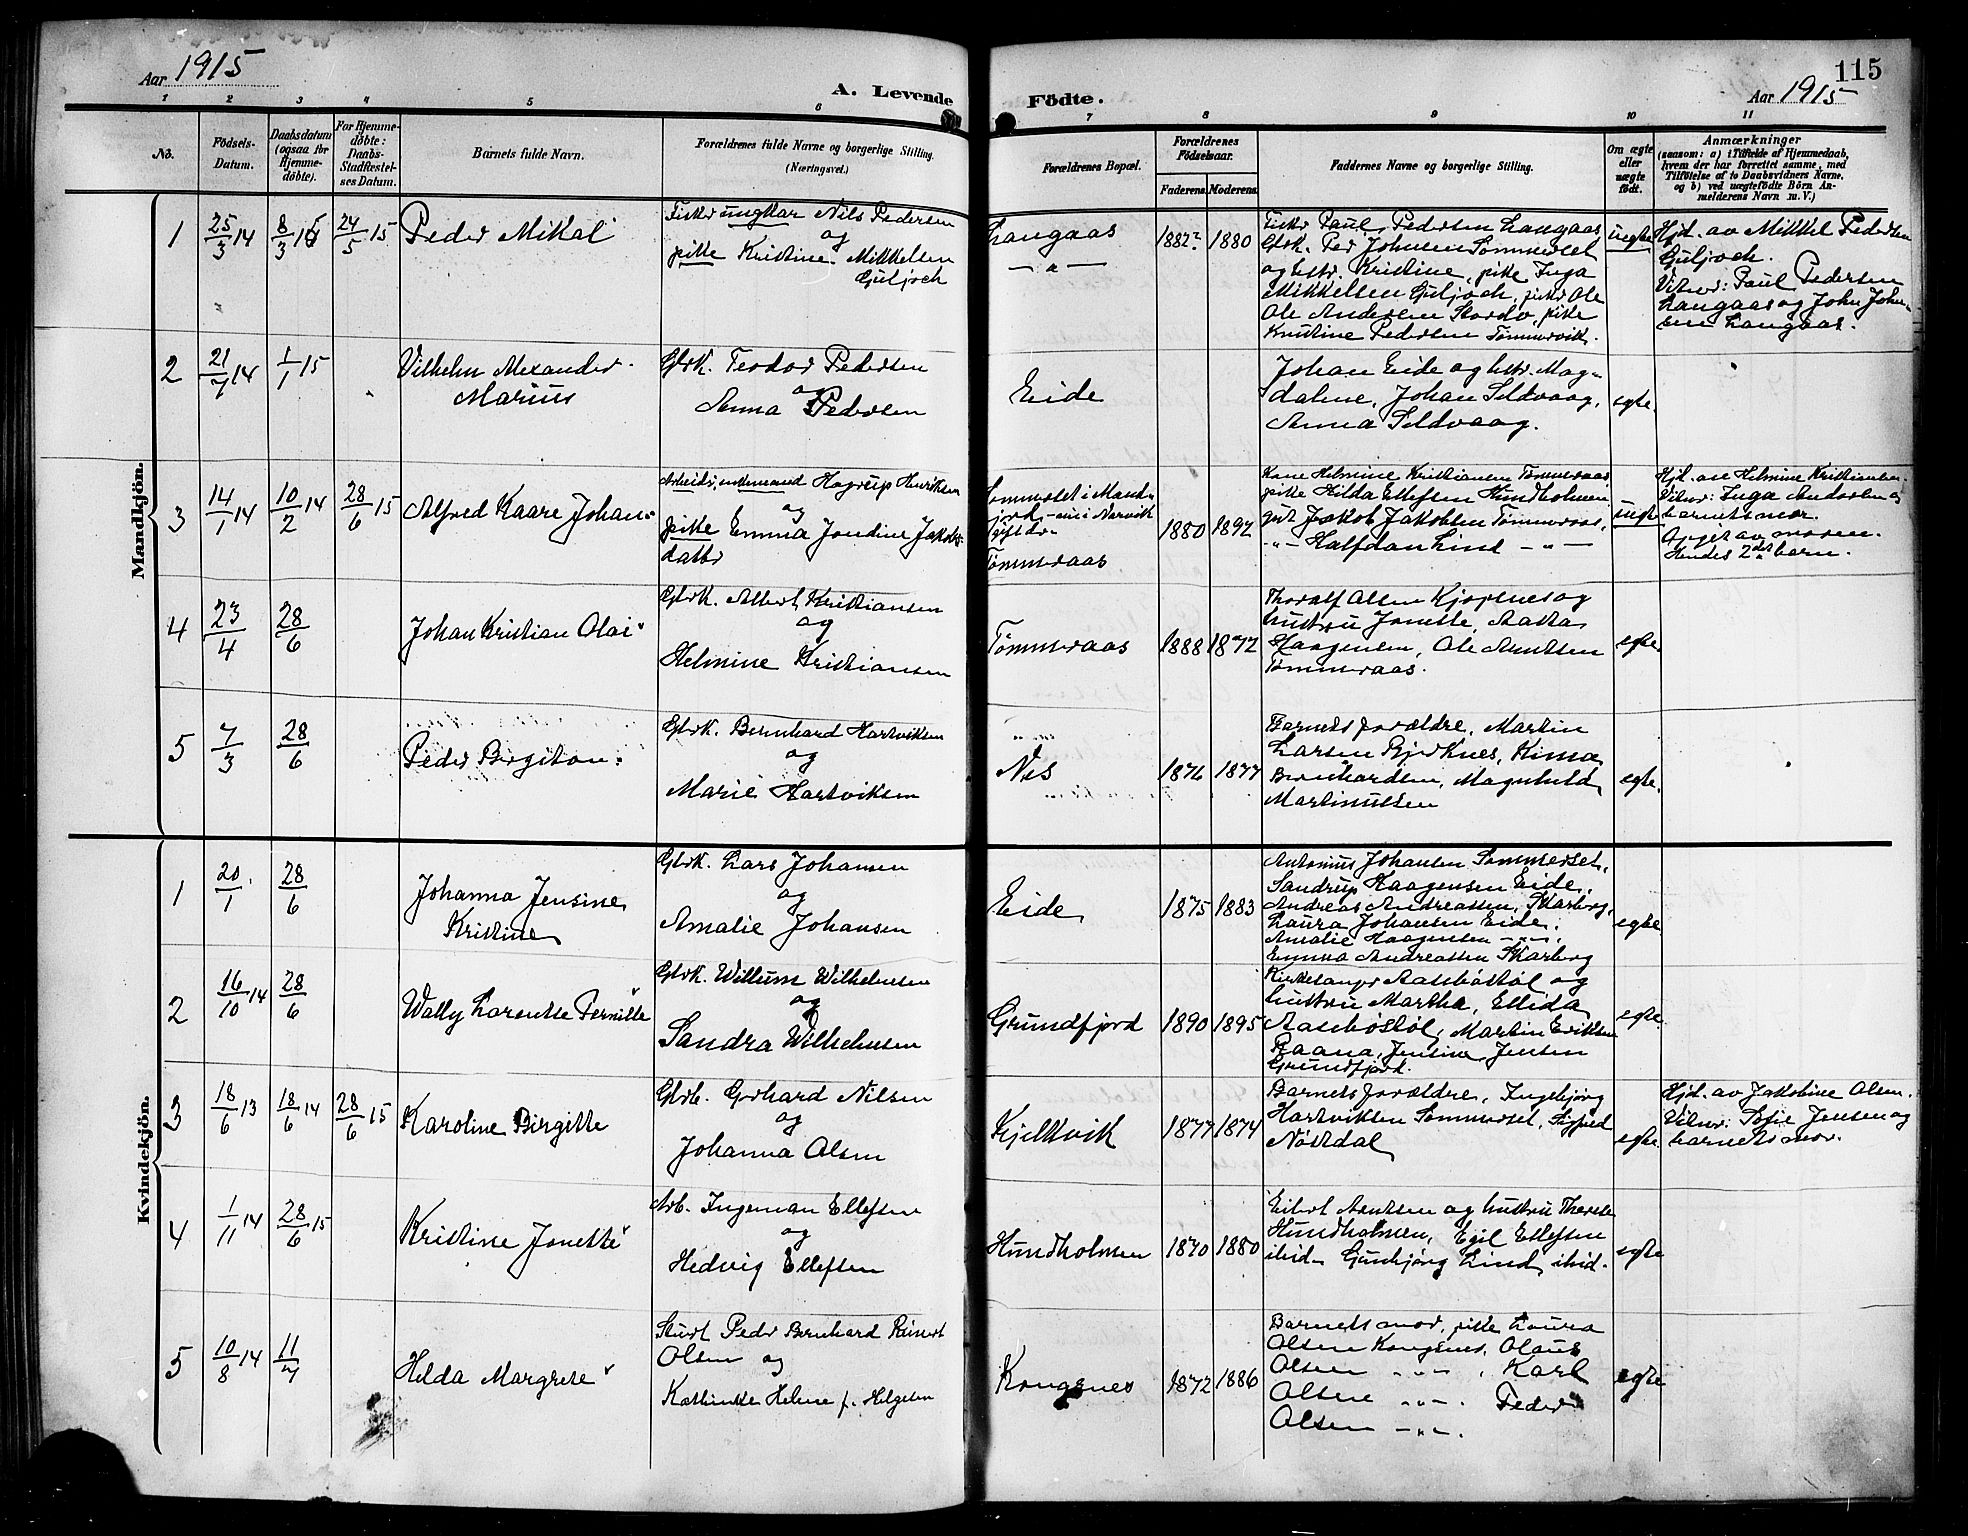 Aar 1915
A. Levende
Födte.
115
Aar 1915
1 2 3 4 5 6 7 8 9 10 11
No.
Födsels-
Datum.
Daabsdatum
(ogsaa for
Hjemme-
döbte).
For Hjemme-
döbte:
Daabs-
Stadfæstel-
ses Datum.
Barnets fulde Navn.
Forældrenes fulde Navne og borgerlige Stilling.
(Næringsvei.)
Forældrenes Bopæl.
Forældrenes
Födselsaar.
Faderens. Moderens.
Faddernes Navne og borgerlige Stilling.
Om ægte
eller
uægte
födt.
Anmærkninger
(saasom: a) i Tilfælde af Hjemmedaab,
hvem der har forrettet samme, med
Tilföielse af to Daabsvidners Navne,
og b) ved uægtefödte Börn An-
melderens Navn m. V.)
Mandkjön.
1
25/3 14
8/3
24/5 15
Peder Mikal
Fisker ungkar Nils Pedersen
og
pike Kristine Mikkelsen
Guljoch
Langaas
— " —
1882
1880
Fisker Paul Pedersen Langaas
Gbrk. Per Johnsen Sommerset
og hstr. Kristine, pike Inga
Mikkelsen Guljoch, fiskr Ole
Ole Andersen Stordv, pike
Kristine Pedersen Tømmervik.
uegte
Hjd. av Mikkel Pedersen
Guljoch.
Vitner: Paul Pedersen
Langaas og John John-
sen Langaas.
2
21/7 14
1/1 15
Vilhelm Alexander
Marius
Gbrk. Teodor Pedersen
og
Anna Pedersen
Eide
Johan Eide og hstr. Mag-
dalene, Johan Seldvaag,
Anna Seldvaag.
egte.
3
14/1 14
10/2 14
28/6 15
Alfred Kaare Johan
Arbeider, enkemand Hagrup Henriksen
og
pike Emma Jondine Jakobs-
datter
Sommerset i Mand-
fjord - nu i Narvik
Tømmeraas
1880
1892
Kone Helmine Kristiansen Tømmeraas,
pike Hilda Ellefsen Hundholmen
gut Jakob Jakobsen Tømmeraas,
-"- Halfdan Lind -"-
uegte
Hjd. av Helmine Kristiansen.
Vitner: Inga Andersen og
barnets mor.
Opgit av moren.
Hendes 2det barn.
4
23/4
28/6
Johan Kristian Olai
Gbrk. Albert Kristiansen
og
Helmine Kristiansen
Tømmeraas
1888
1872
Thoralf Olsen Kjøpsnes og
hustru Jonette, Aasta
Haagensen, Ole Arntsen
Tømmeraas.
egte.
5
7/3
28/6
Peder Birgiton
Gbrk. Bernhard Hartviksen
og
Marie Hartviksen
Nes
1876
1877
Barnets forældre, Martin
Larsen Bjerknes,
Bernhardsen, Magnhild
Martinussen
egte.
Kvindekjön.
1
20/1
28/6
Johanna Jensine
Kristine
Gbrk. Lars Johansen
og
Amalie Johansen
Eide
1875
1883
Antonius Johansen Sommerset,
Sandrup Haagensen Eide,
Andreas Andreassen, Skarberg,
Laura Johansen Eide,
Amalie Haagensen -"-,
Emma Andreassen Skarberg
egte
2
16/10 14
28/6
Wally Larentse Pernille
Gbrk. Willum Wilhelmsen
og
Sandra Wilhelmsen
Grundfjord
1890
1895
Kirkesanger Aasebøstøl og
hustru Martha, Ellida
Aasebøstøl, Martin Eriksen
Raana, Jensine Jensen
Grundfjord.
egte.
3
18/6 13
18/6 14
28/6 15
Karoline Birgitte
Gbrb. Gerhard Nilsen
og
Johanna Olsen
Kjelkvik
1877
1874
Barnets forældre, Ingebjørg
Hartviksen Sommerset, Sigfred
Nøstdal
egte.
Hjd. av Jakobine Olsen.
Vitner: Sofie Jensen og
barnets mor.
4
1/11 14
28/6 15
Kristine Jonette
Arb. Ingeman Ellefsen
og
Hedvig Ellefsen
Hundholmen
1870
1880
Eilert Arntsen og hustru Therese
Hundholmen, Egil Ellefsen
ibid- Gunbjørg Lind, ibid.
egte
5
10/8 14
11/7
Hilda Margrete
Peder Bernhard Reinert
Olsen og
Kathinka Helene f. Helgesen
Kongsnes
1872
1886
Barnets mor, pike Laura
Olsen Kongsnes, Olaus
Olsen -"-, Karl
Olsen -"-. Peder
Olsen -"-.
egte